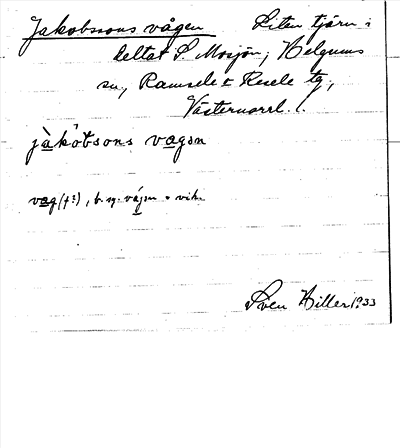 Jakobssons vågen Liten tjärn i
deltat S. Mosjön, Helgums
sn, Ramsele & Resele tg,
Västernorrl. l.
jàkobsons vagən
vag (f?), b. sg. vágen = vik.
Sven Hiller 1933